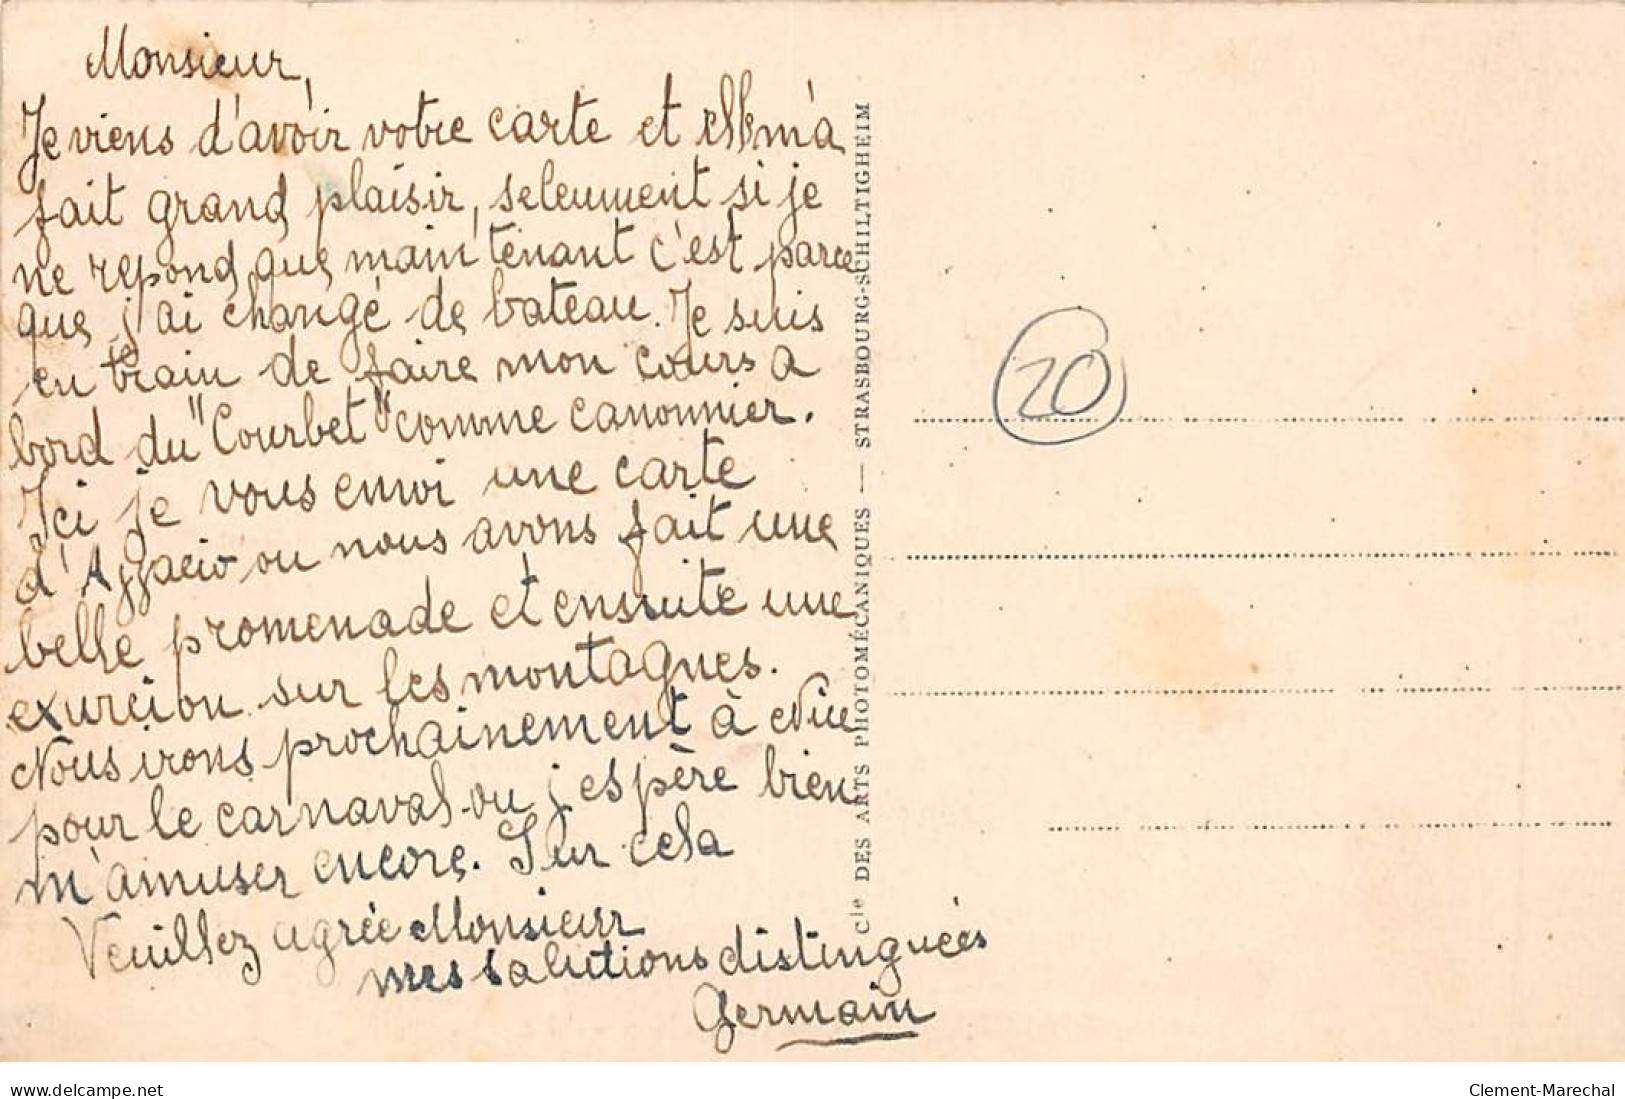 Monsieur,
Je viens d'avoir votre carte et elle m'a
fait grand plaisir, seleument si je
ne repond que maintenant c'est parce
que j'ai changé de bateau. Je suis
en train de faire mon cours a
bord du "Courbet" comme canonnier.
Ici je vous envoi une carte
d'Ajjacio ou nous avons fait une
belle promenade et ensuite une
exurcion sur les montagnes.
Nous irons prochainement à Nice
pour le carnaval ou j'espère bien
m'amuser encore. Sur cela
Veuillez agrée Monsieur
mes salutions distinguées
Germain
Cie DES ARTS PHOTOMÉCANIQUES — STRASBOURG-SCHILTIGHEIM
20
www.delcampe.net
Clement-Marechal